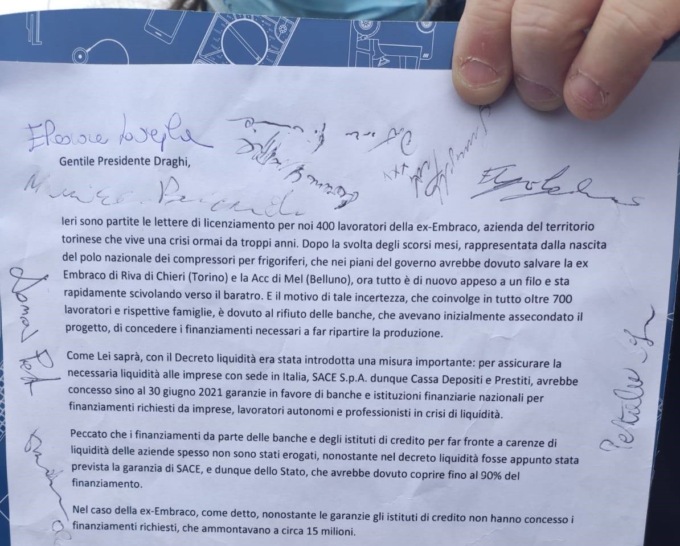 Gentile Presidente Draghi,
Ieri sono partite le lettere di licenziamento per noi 400 lavoratori della ex-Embraco, azienda del territorio
torinese che vive una crisi ormai da troppi anni. Dopo la svolta degli scorsi mesi, rappresentata dalla nascita
del polo nazionale dei compressori per frigoriferi, che nei piani del governo avrebbe dovuto salvare la ex
Embraco di Riva di Chieri (Torino) e la Acc di Mel (Belluno), ora tutto è di nuovo appeso a un filo e sta
rapidamente scivolando verso il baratro. E il motivo di tale incertezza, che coinvolge in tutto oltre 700
lavoratori e rispettive famiglie, è dovuto al rifiuto delle banche, che avevano inizialmente assecondato il
progetto, di concedere i finanziamenti necessari a far ripartire la produzione.
Come Lei saprà, con il Decreto liquidità era stata introdotta una misura importante: per assicurare la
necessaria liquidità alle imprese con sede in Italia, SACE S.p.A. dunque Cassa Depositi e Prestiti, avrebbe
concesso sino al 30 giugno 2021 garanzie in favore di banche e istituzioni finanziarie nazionali per
finanziamenti richiesti da imprese, lavoratori autonomi e professionisti in crisi di liquidità.
Peccato che i finanziamenti da parte delle banche e degli istituti di credito per far fronte a carenze di
liquidità delle aziende spesso non sono stati erogati, nonostante nel decreto liquidità fosse appunto stata
prevista la garanzia di SACE, e dunque dello Stato, che avrebbe dovuto coprire fino al 90% del
finanziamento.
Nel caso della ex-Embraco, come detto, nonostante le garanzie gli istituti di credito non hanno concesso i
finanziamenti richiesti, che ammontavano a circa 15 milioni.